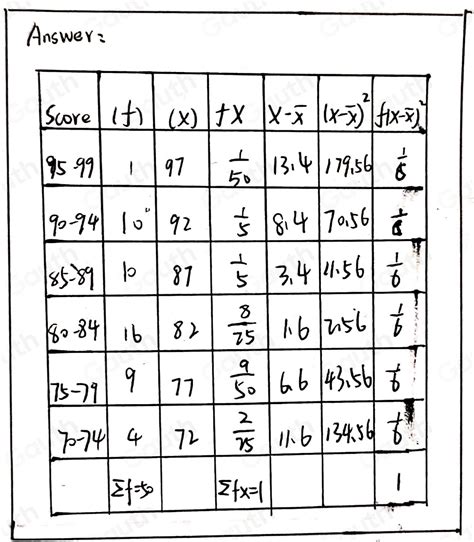 Answer:
Score (f) (X) fX X-X̄ (X-X̄)² f(X-X̄)²
95-99 1 97 1/50 13.4 179.56 1/6
90-94 10 92 1/5 8.4 70.56 1/6
85-89 10 87 1/5 3.4 11.56 1/6
80-84 16 82 8/25 1.6 2.56 1/6
75-79 9 77 9/50 6.6 43.56 1/6
70-74 4 72 2/25 11.6 134.56 1/6
Σf=50 Σfx=1 1